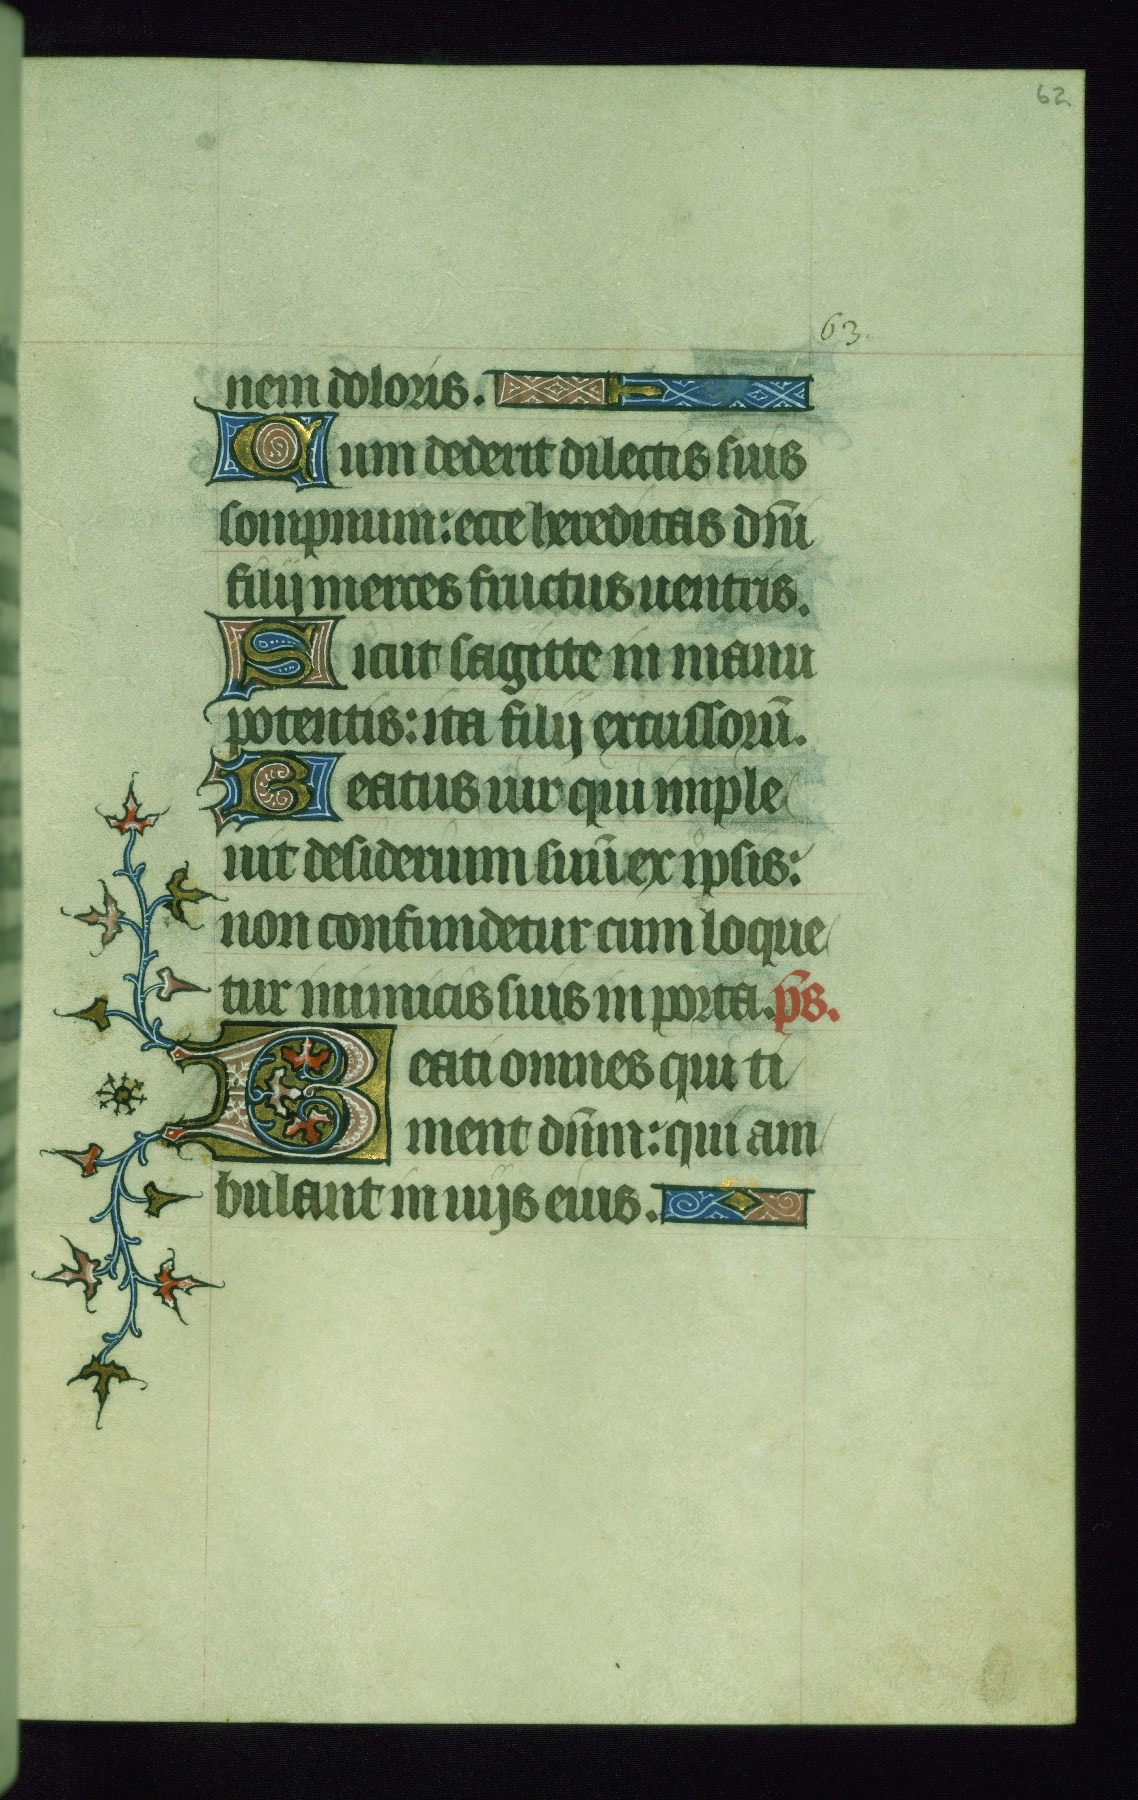 62
63.
nem doloris.
Cum dederit dilectis suis
sompnum: ecce hereditas dn̄i
filij merces fructus uentris.
Sicut sagitte in manu
potentis: ita filij excussorū.
Beatus uir qui imple
uit desiderium suū ex ipsis:
non confundetur cum loque
tur inimicis suis in porta. p̄s.
Beati omnes qui ti
ment dn̄m: qui am
bulant in uijs eius.